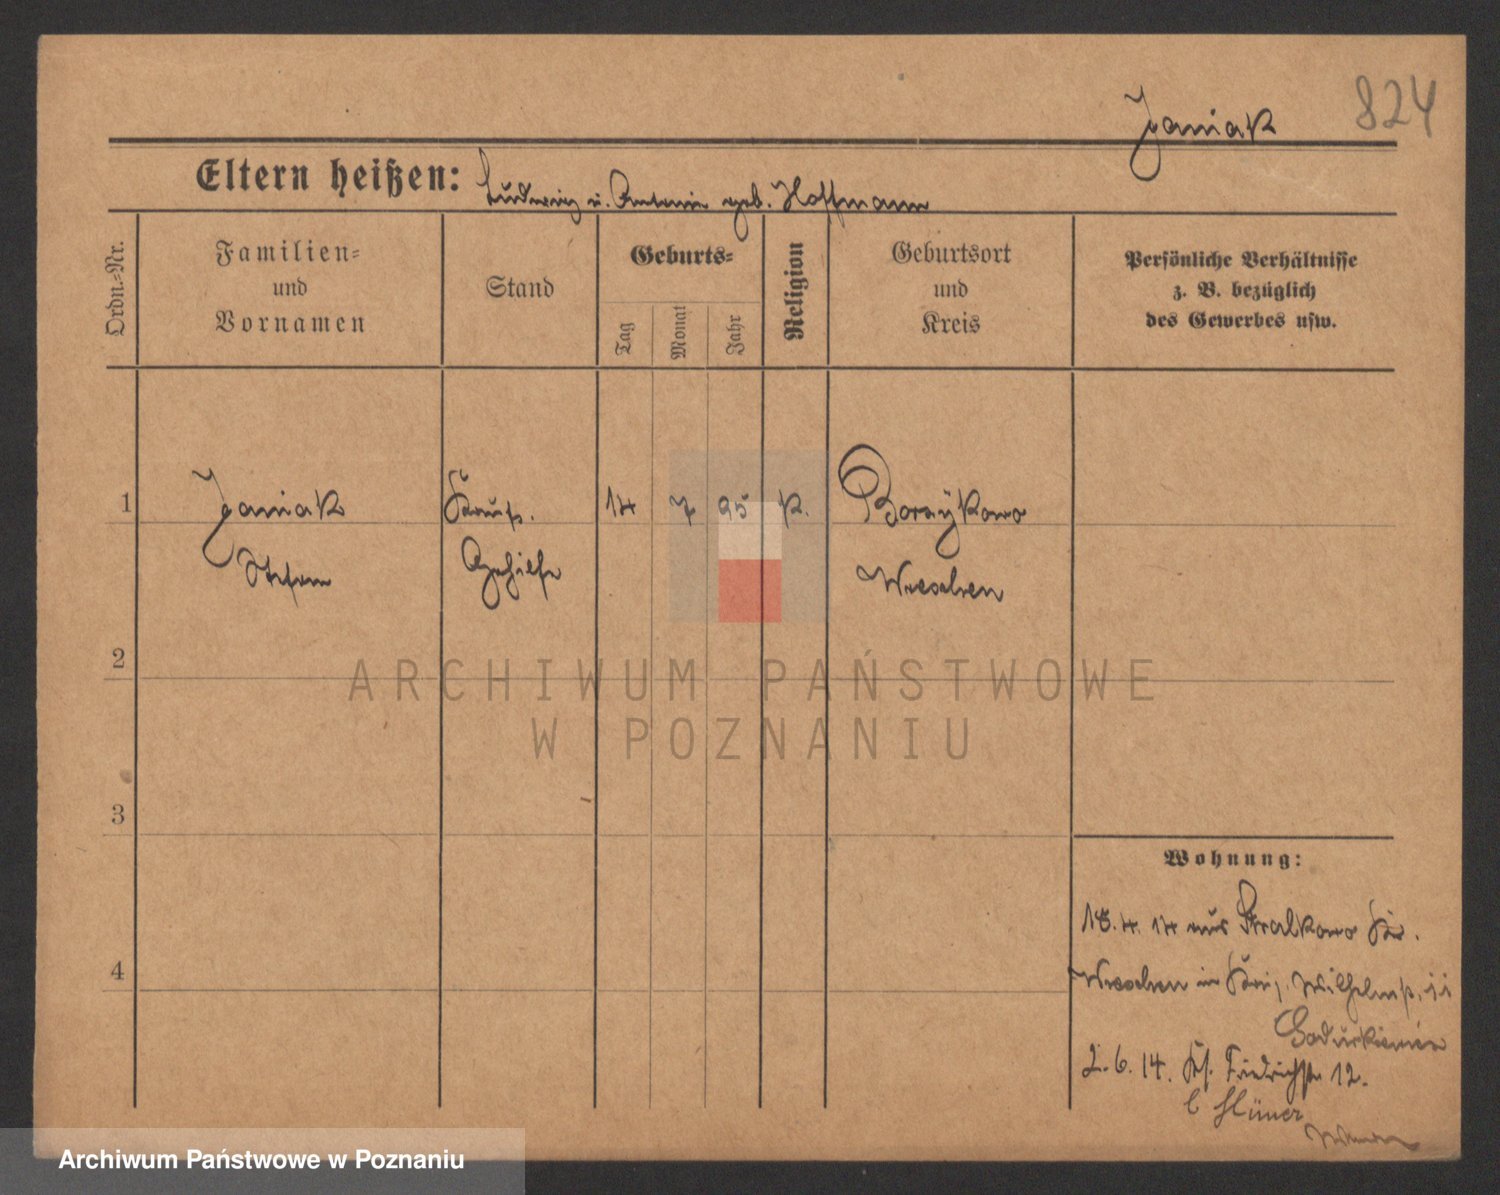 824
Janiak
Eltern heißen: Ludwig u. Antonie geb. Hoffmann
Ordn.-Nr.
Familien-
und
Vornamen
Stand
Geburts-
Tag
Monat
Jahr
Religion
Geburtsort
und
Kreis
Persönliche Verhältnisse
z. B. bezüglich
des Gewerbes usw.
1 Janiak Kaufm. 14 7 95 K. Borzykowo
Stefan Gehilfe Wreschen
ARCHIWUM PAŃSTWOWE
W POZNANIU
2
3
4
Wohnung:
18.4.14 aus Stralkowo Kr.
Wreschen in Wilhelmpl.
2.6.14. Friedrichstr 12.
Archiwum Państwowe w Poznaniu